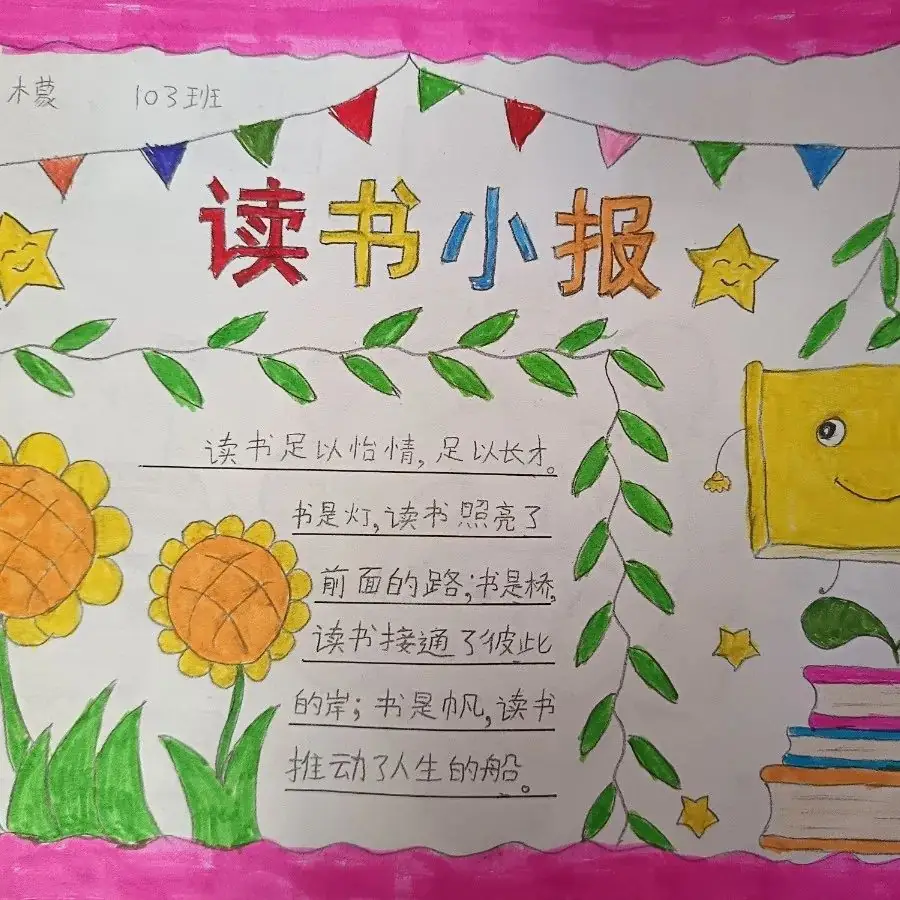 木蒙 103班
读书小报
读书足以怡情，足以长才。
书是灯，读书照亮了
前面的路；书是桥，
读书接通了彼此
的岸；书是帆，读书
推动了人生的船。